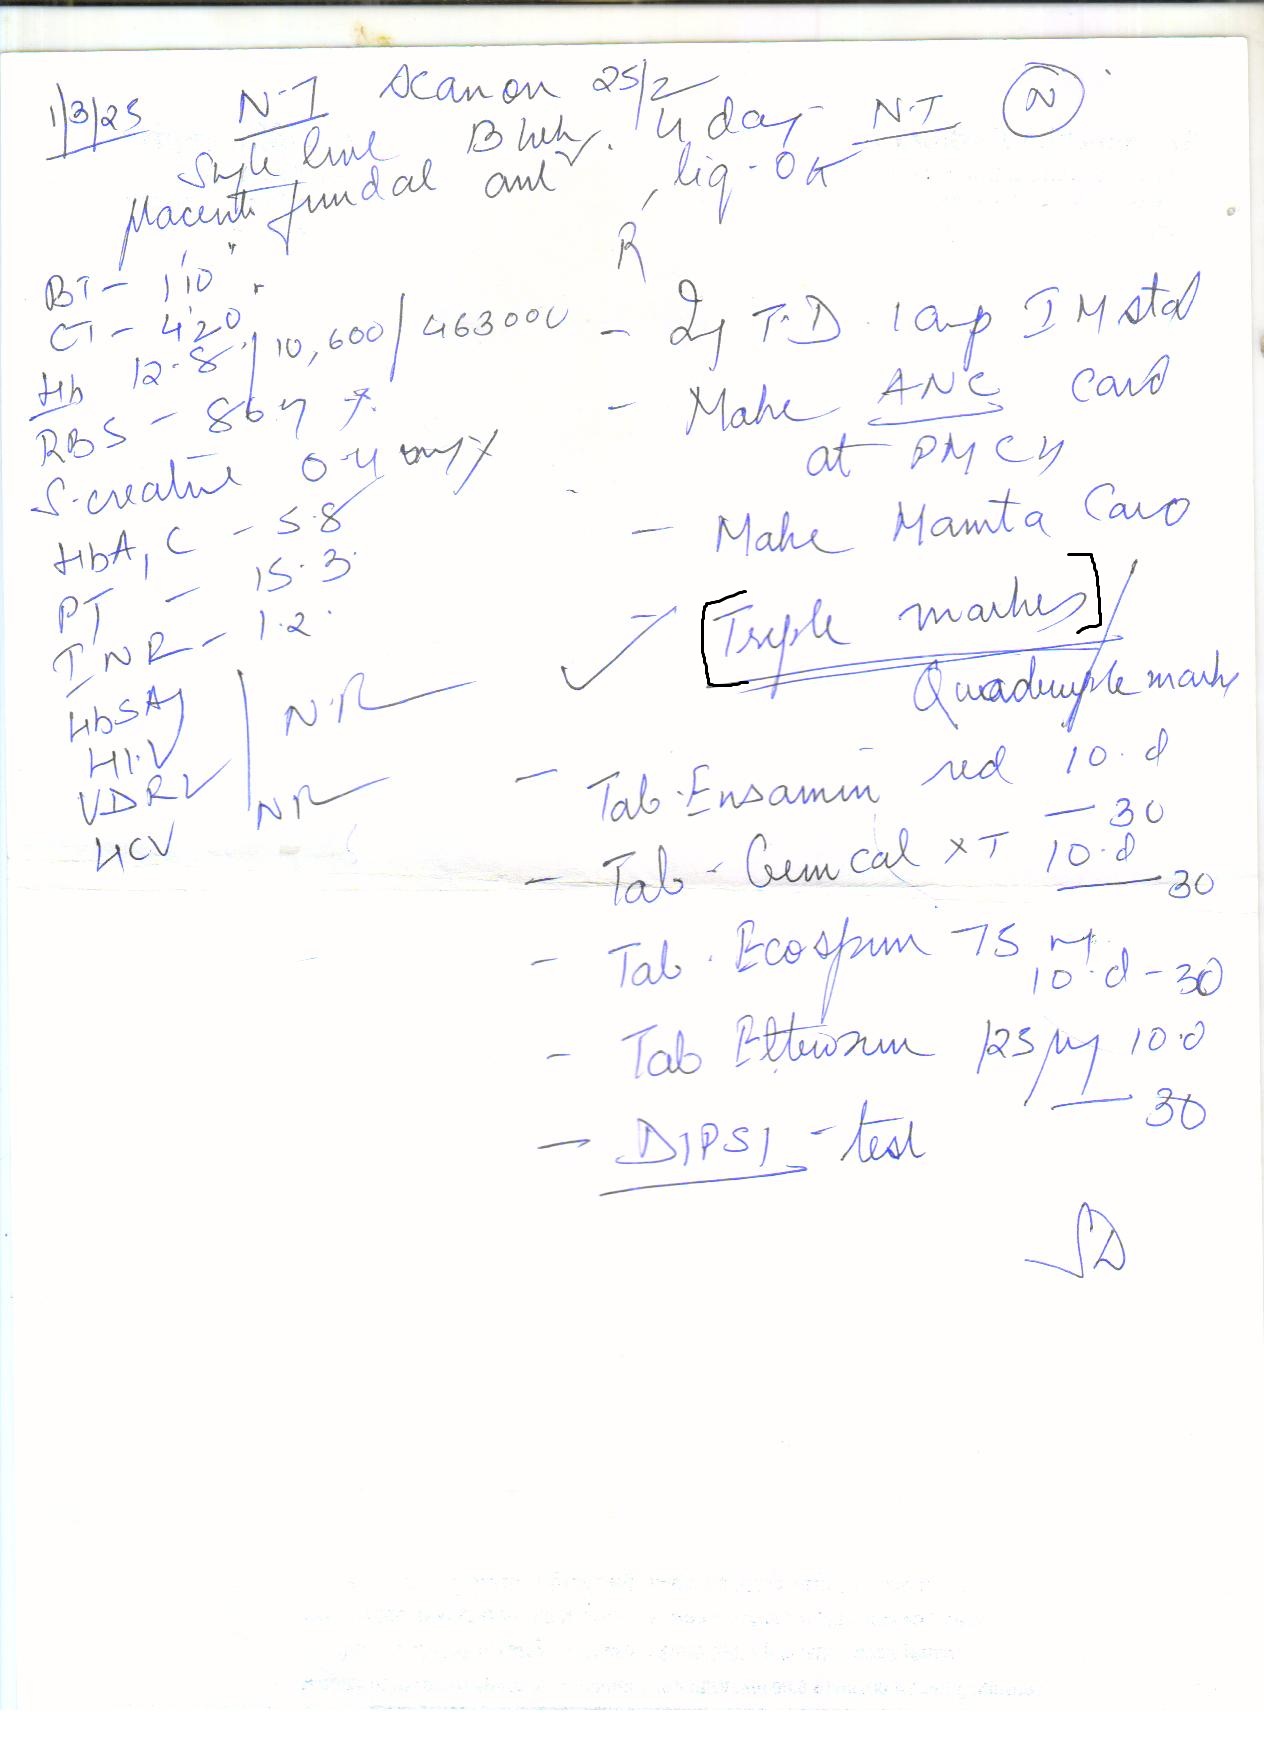 1/3/25 N.T Scan on 25/2
Single live 13 week. 4 day N.T (N)
Placenta fundal ant, liq - OK
R
BT - 1'10"
CT - 4'20"
Hb 12.8 / 10,600 / 463000
RBS - 86
S. creatine 0.4
HbA1C - 5.8
PT - 15.3
INR - 1.2
HbSAg
HIV
VDRL
N.R
HCV
NR
- Inj T.D 1 amp IM stat
- Make ANC Card
at
- Make Mamta Card
✓ [Triple marker] /
Quadruple marker
- Tab. Ensamin red 10.d
- 30
- Tab - Gemcal XT 10.d
- 30
- Tab. Ecosprin 75 mg
10.d - 30
- Tab Eltroxin 125 µg 10.d
- 30
- DIPSI - test